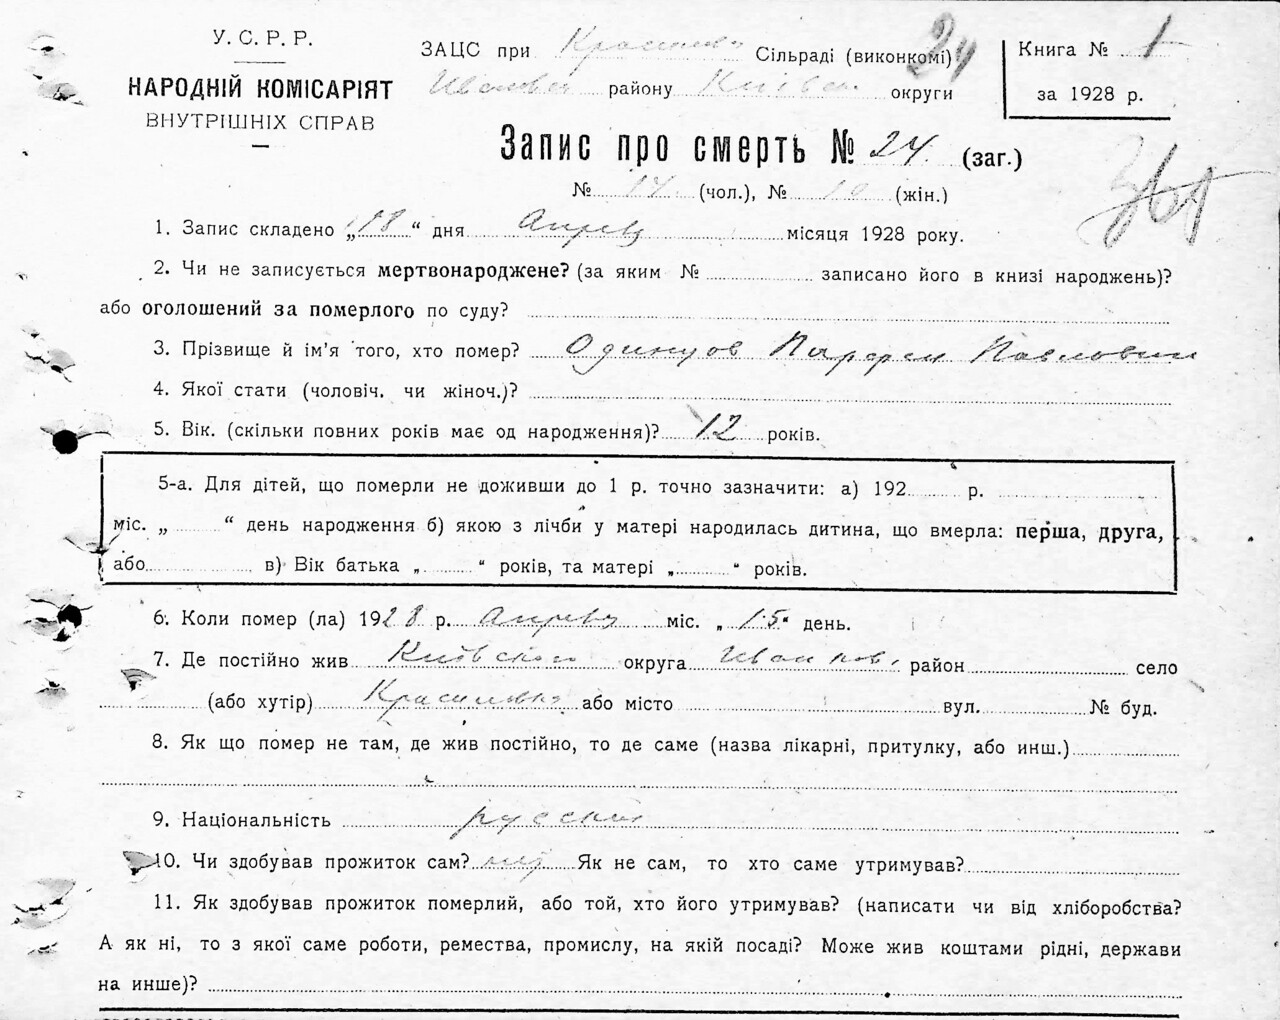 У. С. Р. Р.
НАРОДНІЙ КОМІСАРІЯТ
ВНУТРІШНІХ СПРАВ
ЗАЦС при Сільраді (виконкомі) 24
району Київск. округи
Книга № 1
за 1928 р.
Запис про смерть № 24. (заг.)
№ 14. (чол.), № 10 (жін.)
1. Запис складено „18“ дня Апреля місяця 1928 року.
2. Чи не записується мертвонароджене? (за яким № записано його в книзі народжень)?
або оголошений за померлого по суду?
3. Прізвище й ім'я того, хто помер? Одинцов Парфен Павлович
4. Якої стати (чоловіч. чи жіноч.)?
5. Вік. (скільки повних років має од народження)? 12 років.
5-а. Для дітей, що померли не доживши до 1 р. точно зазначити: а) 192 р.
міс. „ “ день народження б) якою з лічби у матері народилась дитина, що вмерла: перша, друга,
або в) Вік батька „ “ років, та матері „ “ років.
6. Коли помер (ла) 1928 р. Апреля міс. „15“ день.
7. Де постійно жив Київского округа Иванков. район село
(або хутір) Красиловка або місто вул. № буд.
8. Як що помер не там, де жив постійно, то де саме (назва лікарні, притулку, або инш.)
9. Національність русский
10. Чи здобував прожиток сам? Як не сам, то хто саме утримував?
11. Як здобував прожиток померлий, або той, хто його утримував? (написати чи від хліборобства?
А як ні, то з якої саме роботи, ремества, промислу, на якій посаді? Може жив коштами рідні, держави
на инше)?